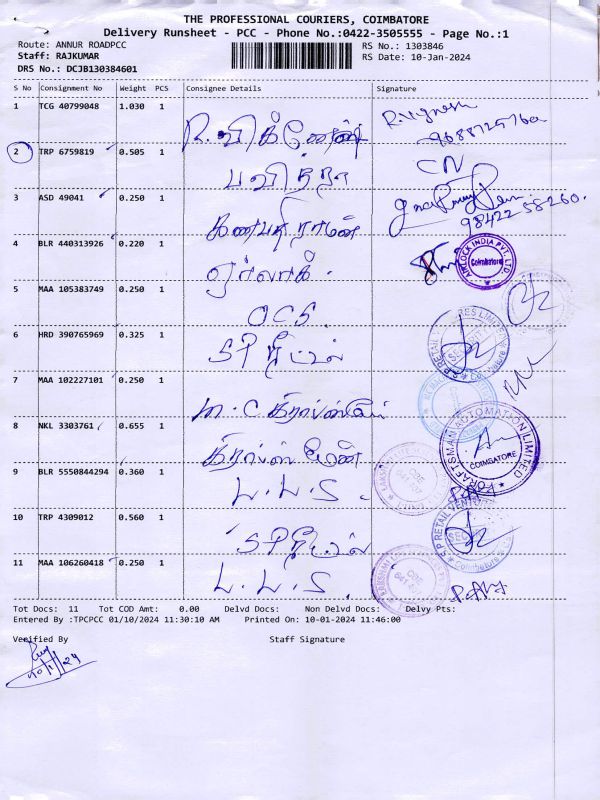 THE PROFESSIONAL COURIERS, COIMBATORE
Delivery Runsheet - PCC - Phone No.:0422-3505555 - Page No.:1
Route: ANNUR ROADPCC RS No.: 1303846
Staff: RAJKUMAR RS Date: 10-Jan-2024
DRS No.: DCJB130384601
S No Consignment No Weight PCS Consignee Details Signature
1 TCG 40799048 1.030 1 R. விக்னேஷ் R. Vignesh
2 TRP 6759819 0.505 1 பவித்ரா CN
3 ASD 49041 0.250 1 கணபதி ராமன் 98422 58260.
4 BLR 440313926 0.220 1 AIRLOCK INDIA PVT. LTD. Coimbatore
5 MAA 105383749 0.250 1 OCS.
6 HRD 390765969 0.325 1 SP ரீடெய்ல் S.P.RETAIL VENTURES LIMITED Coimbatore
7 MAA 102227101 0.250 1 M.C.
8 NKL 3303761 0.655 1 CRAFTSMAN AUTOMATION LIMITED COIMBATORE
9 BLR 5550844294 0.360 1 L.L.S.
10 TRP 4309012 0.560 1 SP ரீடெய்ல் S.P RETAIL VENTURES Coimbatore
11 MAA 106260418 0.250 1 L.L.S.
Tot Docs: 11 Tot COD Amt: 0.00 Delvd Docs: Non Delvd Docs: Delvy Pts:
Entered By :TPCPCC 01/10/2024 11:30:10 AM Printed On: 10-01-2024 11:46:00
Veerified By Staff Signature
10/1/24